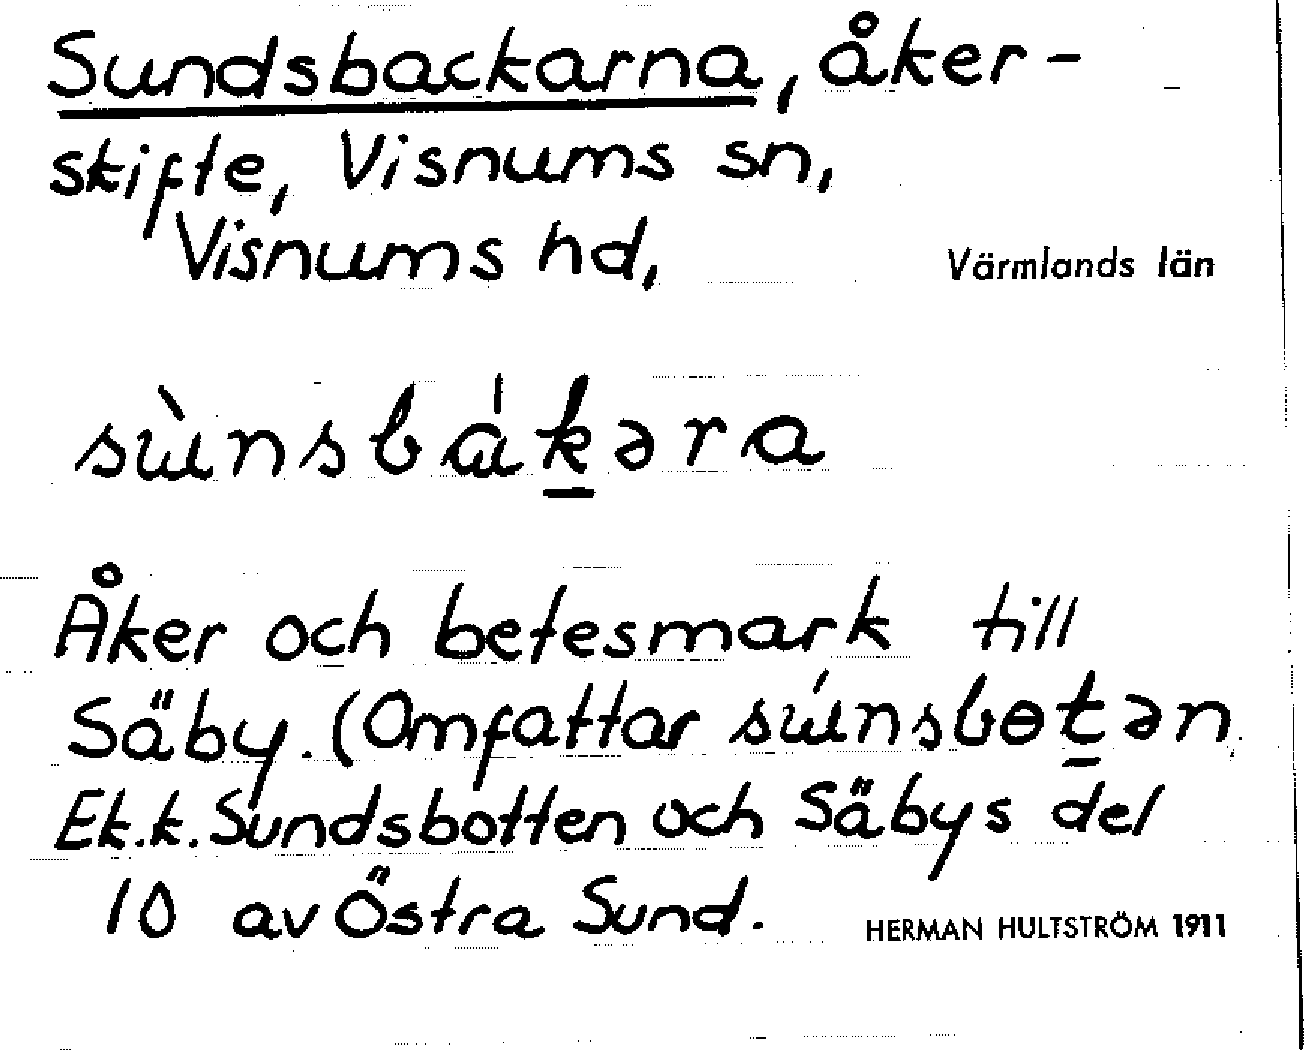 Sundsbackarna, åker-
skifte, Visnums sn,
Visnums hd,
Värmlands län
sùnsbákəra
Åker och betesmark till
Säby. (Omfattar súnsbɵtən
Ek.k. Sundsbotten och Säbys del
10 av Östra Sund.
HERMAN HULTSTRÖM 1911